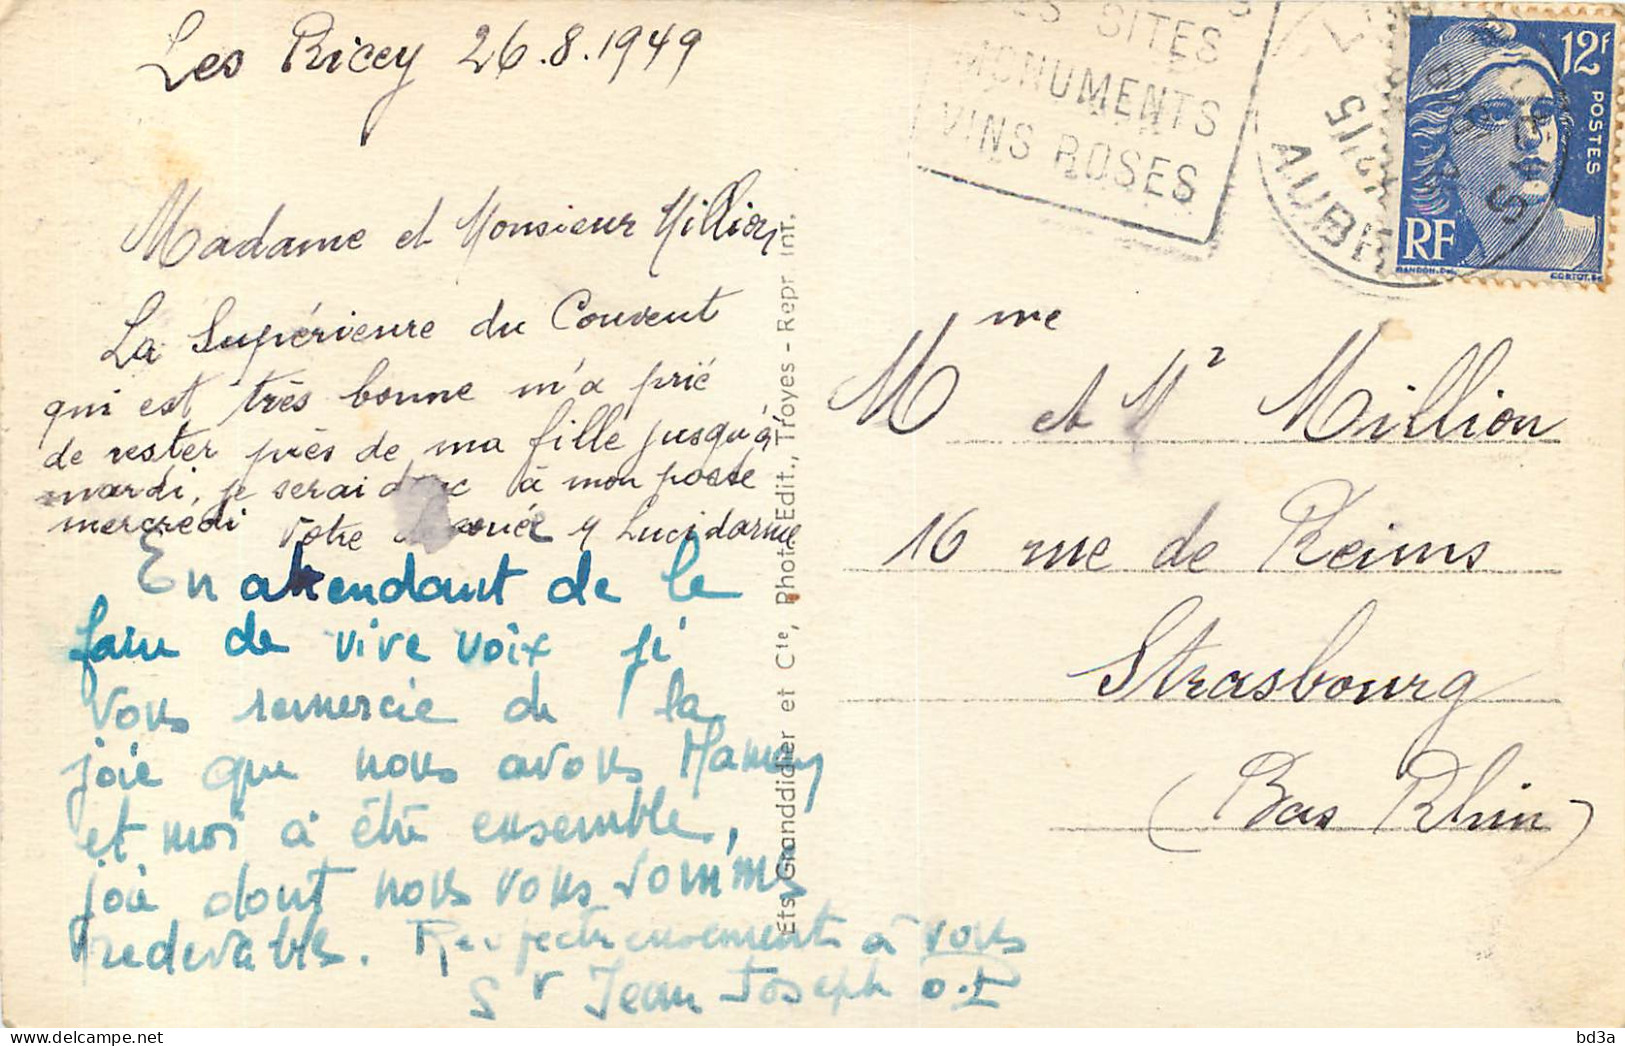 Les Ricey 26.8.1949
SITES
MONUMENTS
VINS ROSES
AUBE
12f
POSTES
RF
Madame et Monsieur Million
La Supérieure du Couvent
qui est très bonne m'a prié
de rester près de ma fille jusqu'à
mardi, je serai donc à mon poste
mercredi Votre dévouée Y Lucidarme
En attendant de le
faire de vive voix je
vous remercie de la
joie que nous avons Maman
et moi à être ensemble,
joie dont nous vous sommes
redevables. Respectueusement à vous
Sr Jean Joseph o.P
Ets Granddidier et Cie, Phot. Edit., Troyes - Repr. int.
Mme et Mr Million
16 rue de Reims
Strasbourg
(Bas Rhin)
bd3a